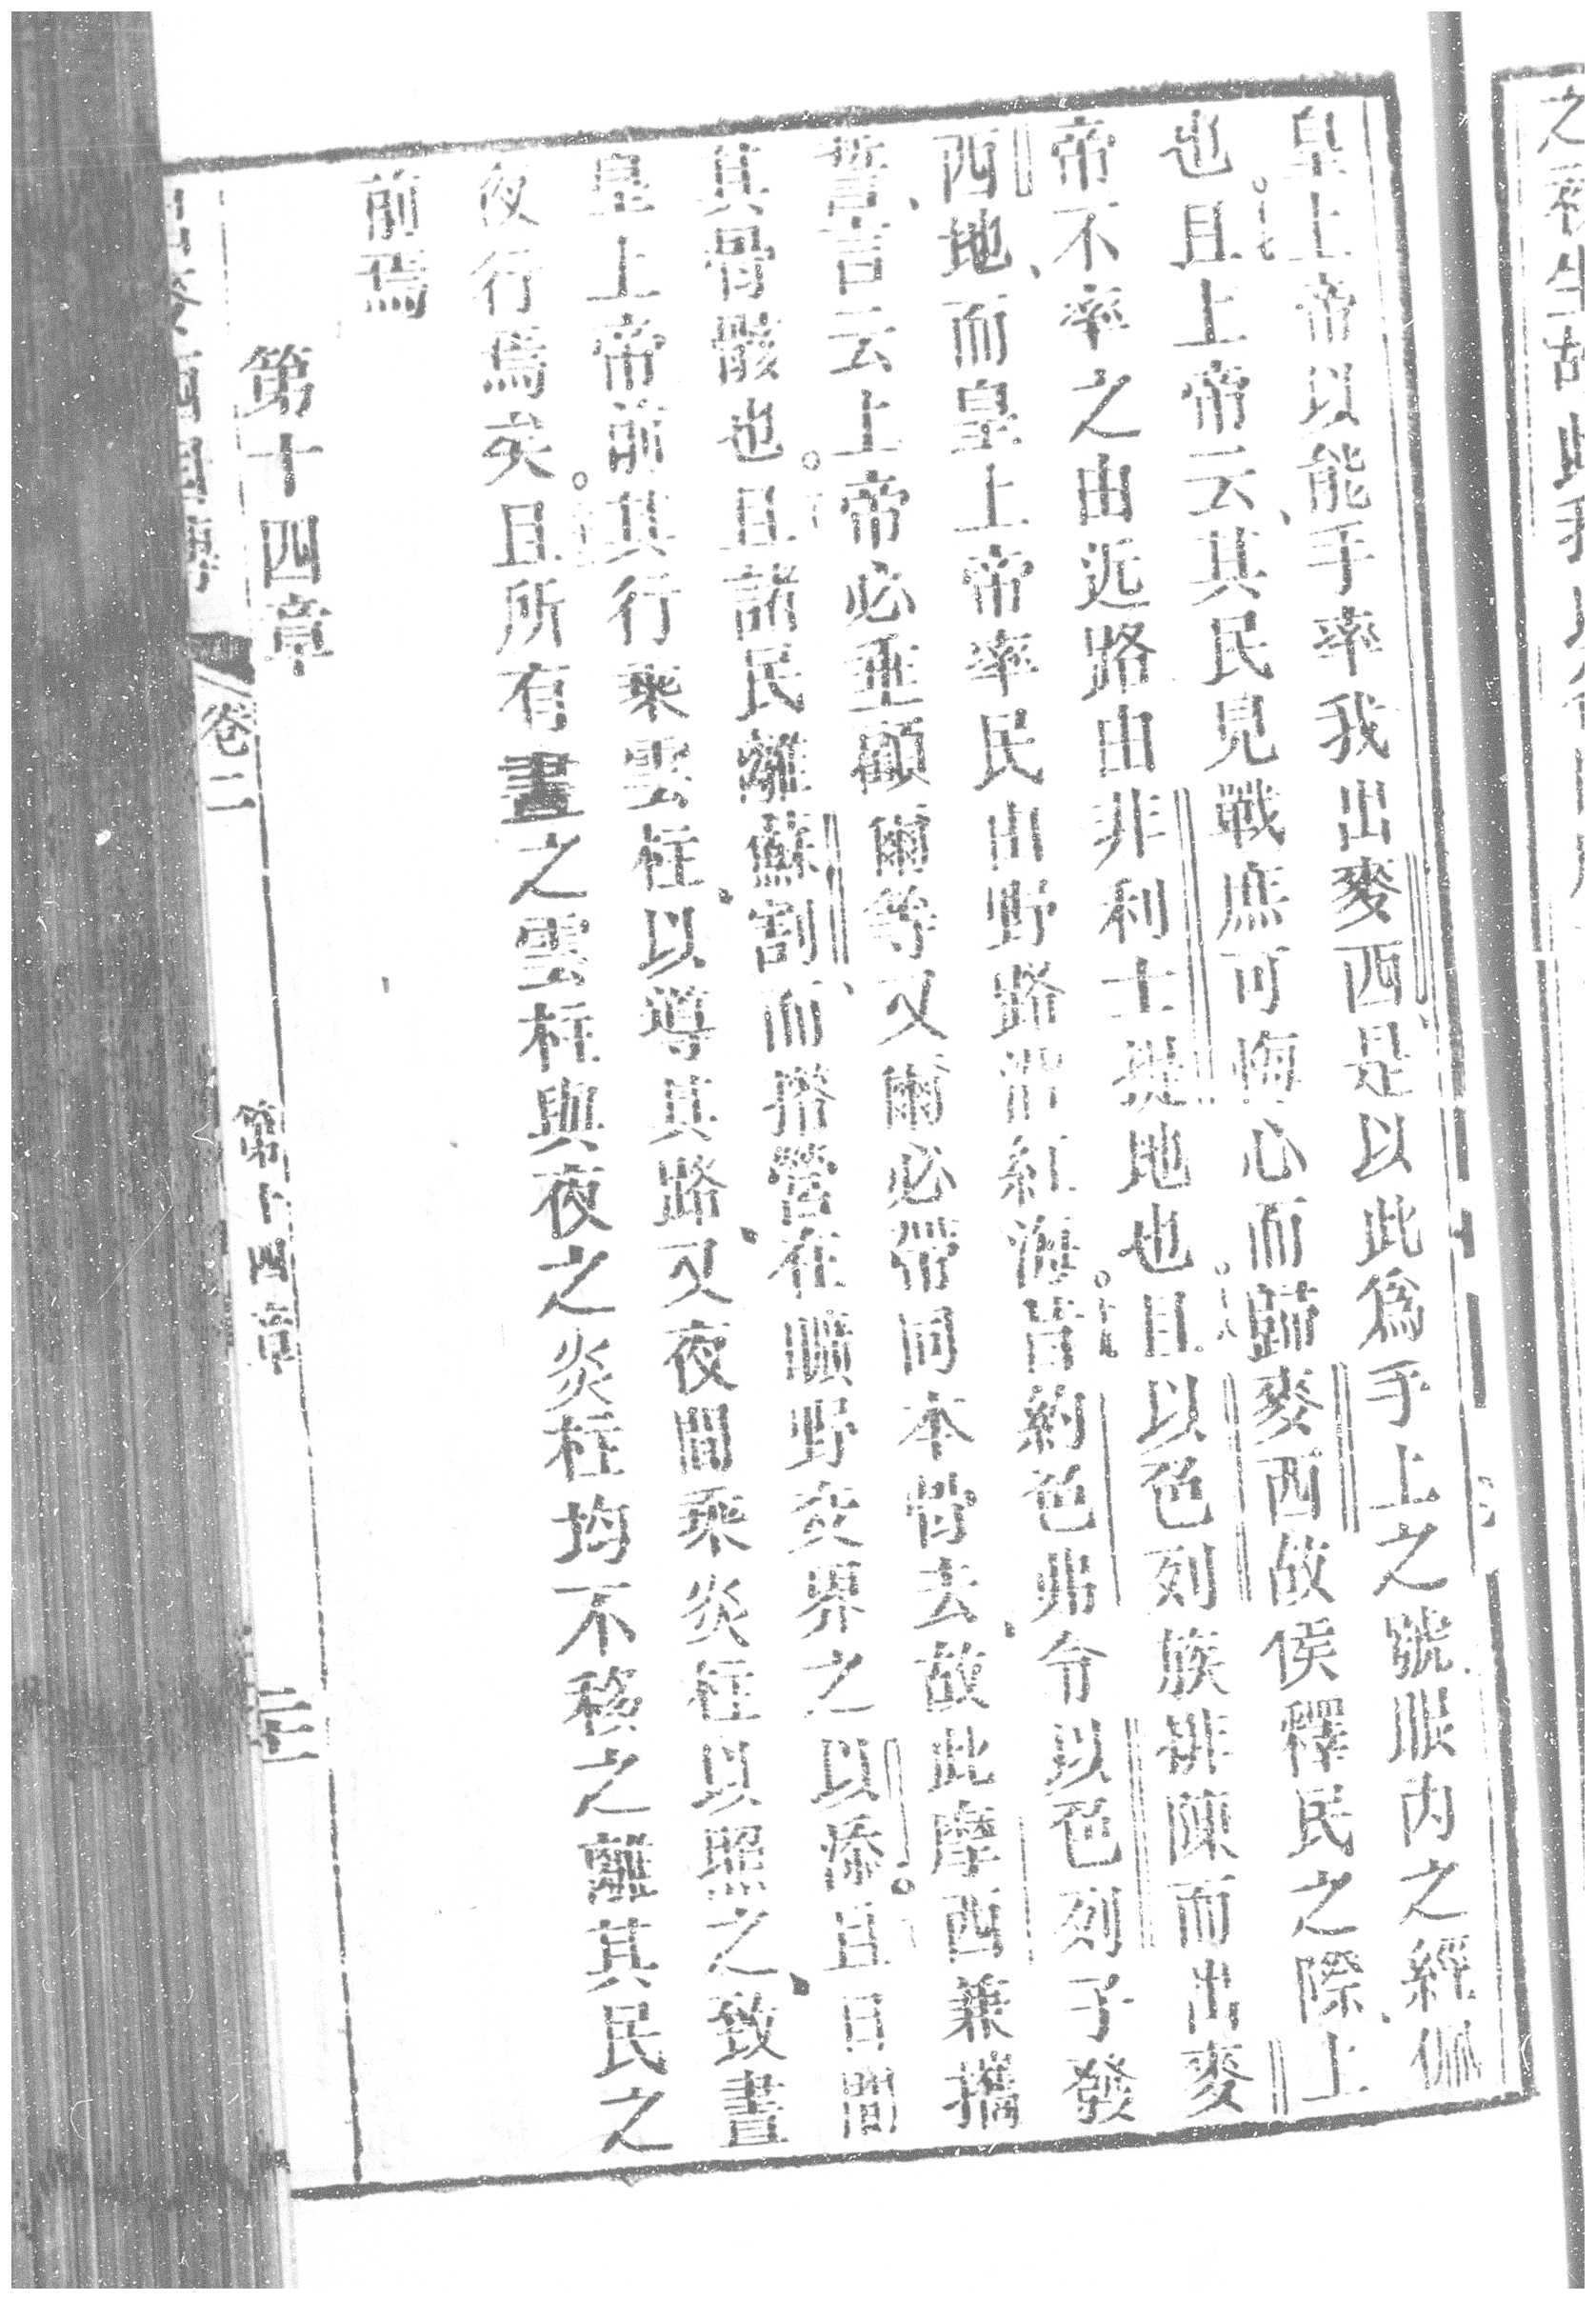 皇上帝以能手率我出麥西是以此爲手上之號眼內之經佩
也且上帝云其民見戰庶可悔心而歸麥西故俟釋民之際上
帝不率之由近路由非利士提地也且以色列族排陳而出麥
西地而皇上帝率民由野路沿紅海昔約色弗令以色列子發
誓言云上帝必垂顧爾等又爾必帶同本骨去故此摩西兼攜
其骨骸也且諸民離蘇割而搭營在曠野交界之以滲且日間
皇上帝前其行乘雲柱以導其路又夜間乘炎柱以照之致晝
夜行焉矣且所有晝之雲柱與夜之炎柱均不移之離其民之
前焉
第十四章
卷二 第十四章